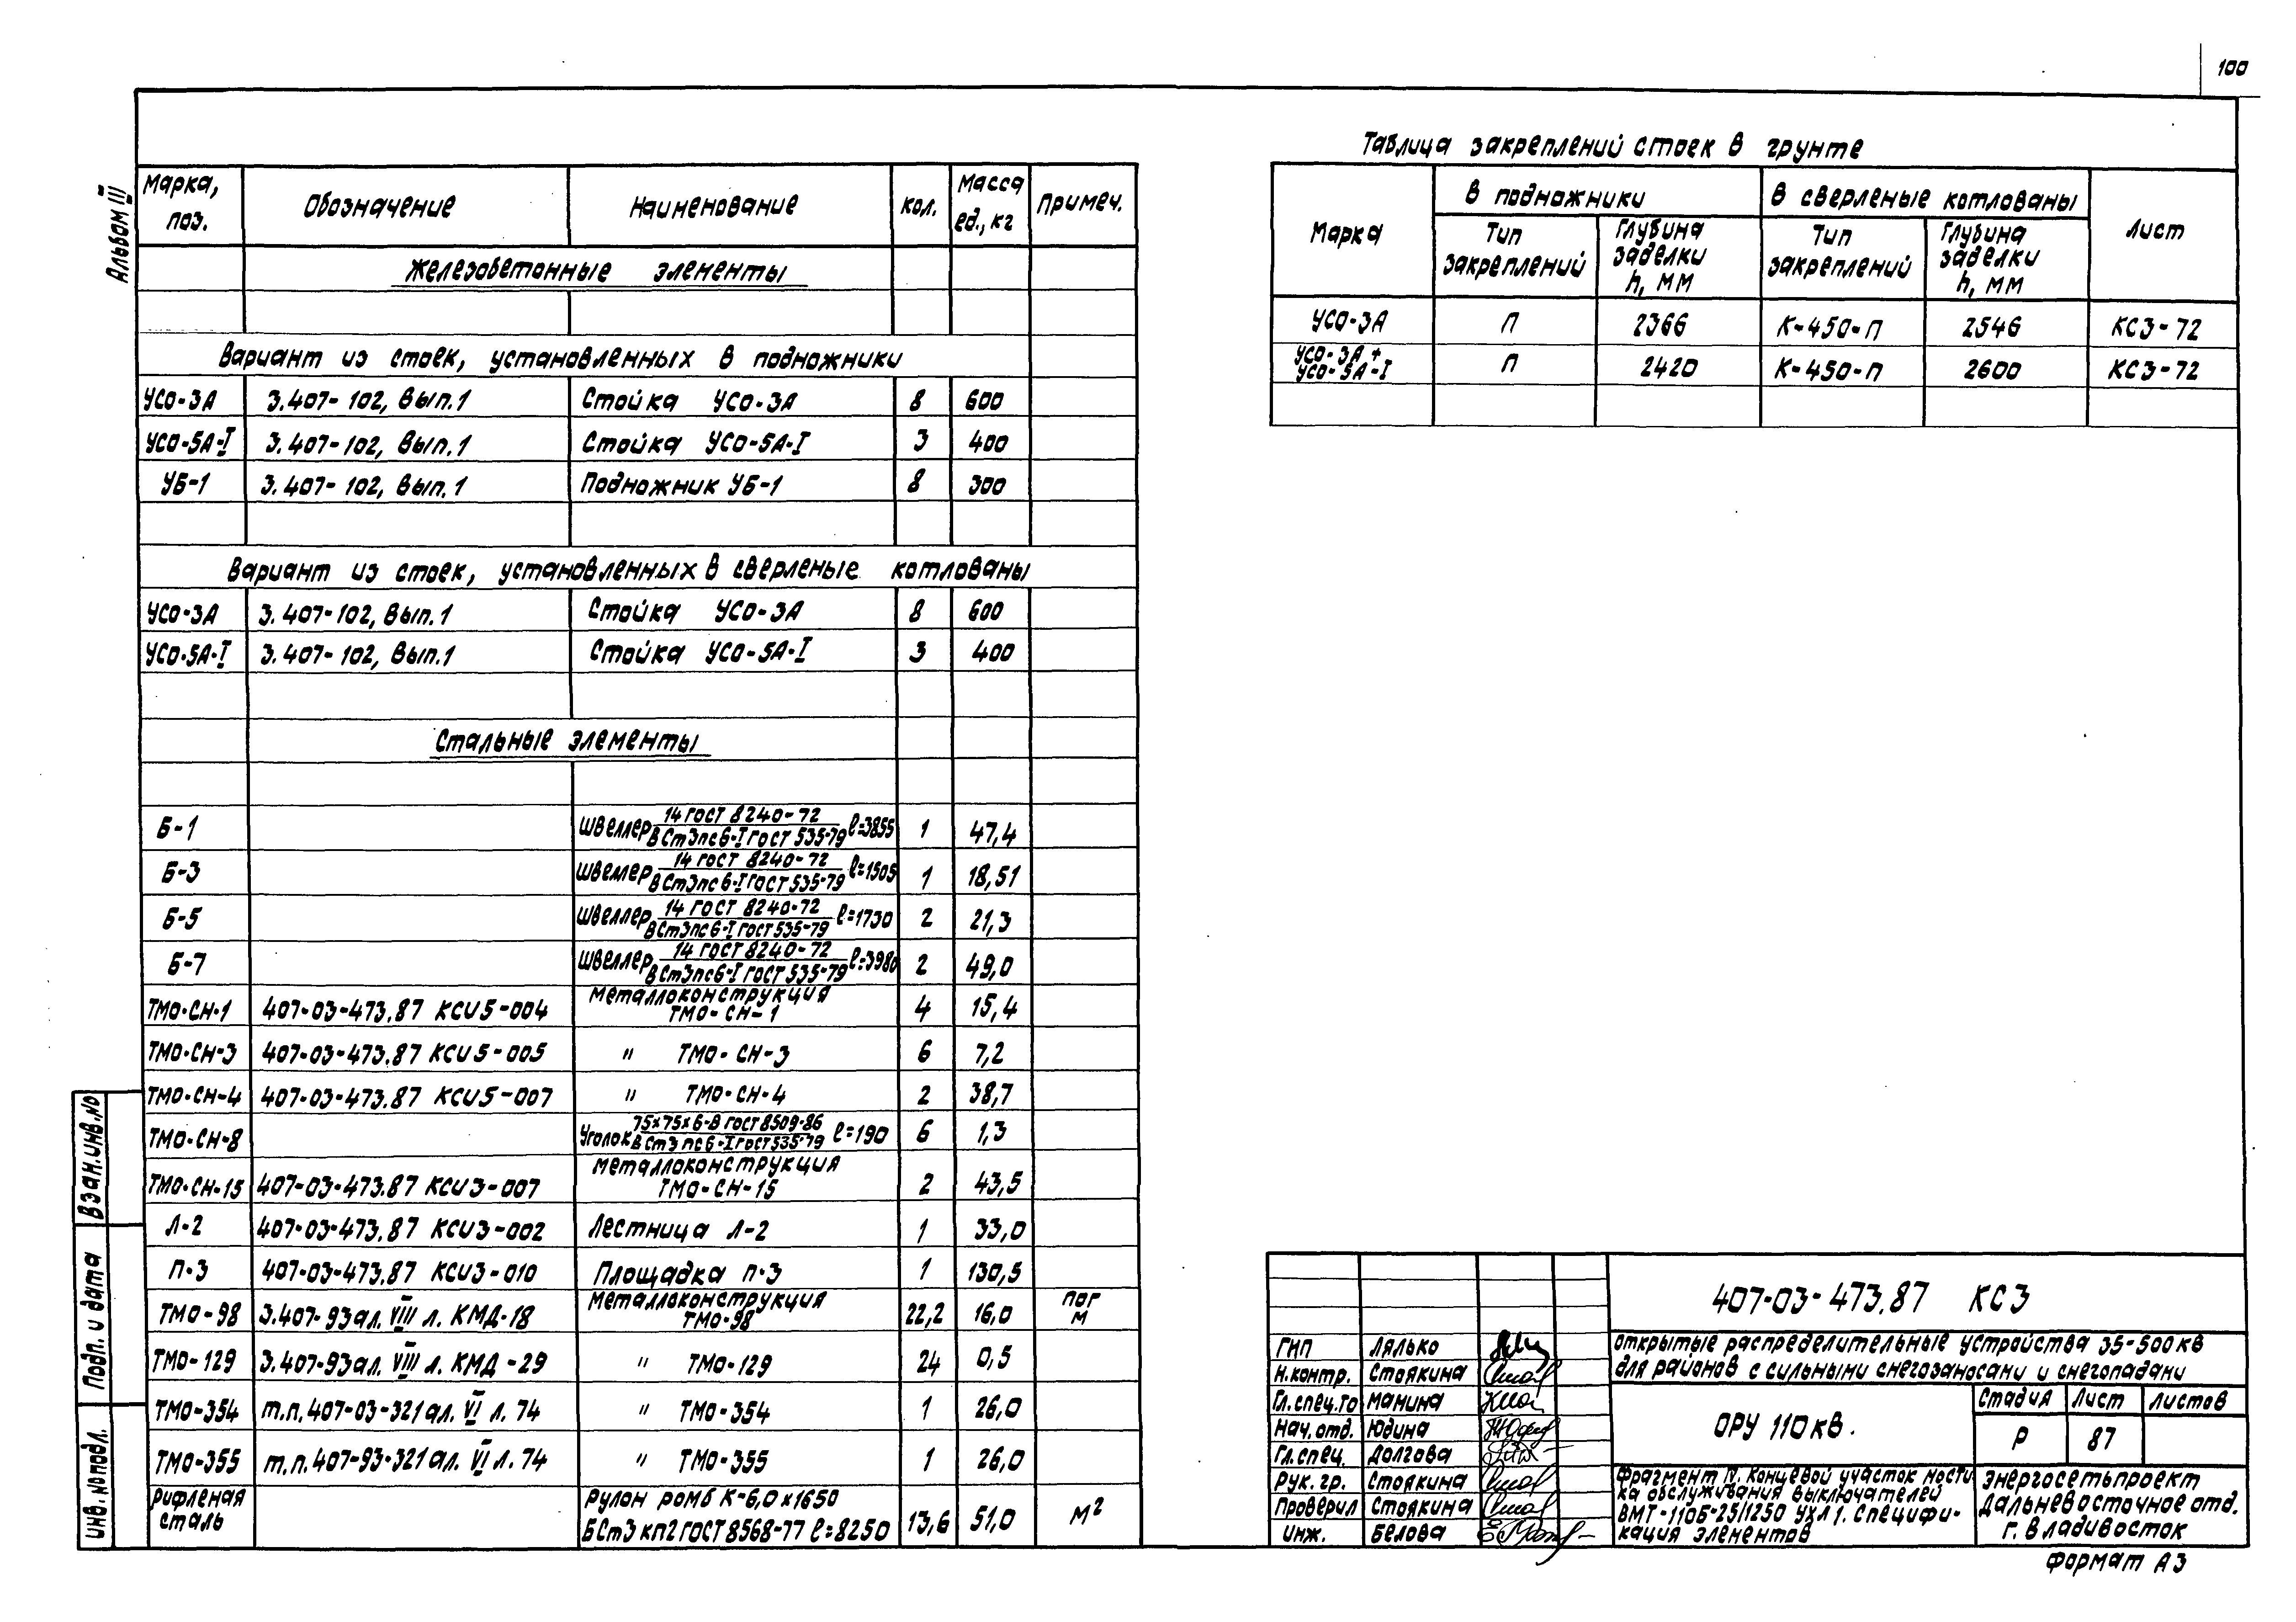 100
Альбом III
Марка, поз. Обозначение Наименование Кол. Масса ед., кг Примеч.
Железобетонные элементы
Вариант из стоек, установленных в подножники
УСО-3А 3.407-102, Вып.1 Стойка УСО-3А 8 600
УСО-5А-I 3.407-102, Вып.1 Стойка УСО-5А-I 3 400
УБ-1 3.407-102, Вып.1 Подножник УБ-1 8 300
Вариант из стоек, установленных в сверленые котлованы
УСО-3А 3.407-102, Вып.1 Стойка УСО-3А 8 600
УСО-5А-I 3.407-102, Вып.1 Стойка УСО-5А-I 3 400
Стальные элементы
Б-1 Швеллер 14 ГОСТ 8240-72 / ВСт3пс6-I ГОСТ 535-79 ℓ=3855 1 47,4
Б-3 Швеллер 14 ГОСТ 8240-72 / ВСт3пс6-I ГОСТ 535-79 ℓ=1505 1 18,51
Б-5 Швеллер 14 ГОСТ 8240-72 / ВСт3пс6-I ГОСТ 535-79 ℓ=1730 2 21,3
Б-7 Швеллер 14 ГОСТ 8240-72 / ВСт3пс6-I ГОСТ 535-79 ℓ=3980 2 49,0
ТМО-СН-1 407-03-473.87 КСИ5-004 Металлоконструкция ТМО-СН-1 4 15,4
ТМО-СН-3 407-03-473.87 КСИ5-005 " ТМО-СН-3 6 7,2
ТМО-СН-4 407-03-473.87 КСИ5-007 " ТМО-СН-4 2 38,7
ТМО-СН-8 Уголок 75х75х6-В ГОСТ 8509-86 / ВСт3пс6-I ГОСТ 535-79 ℓ=190 6 1,3
ТМО-СН-15 407-03-473.87 КСИ3-007 Металлоконструкция ТМО-СН-15 2 43,5
Л-2 407-03-473.87 КСИ3-002 Лестница Л-2 1 33,0
П-3 407-03-473.87 КСИ3-010 Площадка П-3 1 130,5
ТМО-98 3.407-93 ал. VIII л. КМД-18 Металлоконструкция ТМО-98 22,2 16,0 пог м
ТМО-129 3.407-93 ал. VIII л. КМД-29 " ТМО-129 24 0,5
ТМО-354 т.п. 407-03-321 ал. VI л. 74 " ТМО-354 1 26,0
ТМО-355 т.п. 407-93-321 ал. VI л. 74 " ТМО-355 1 26,0
Рифленая сталь Рулон ромб К-6,0х1650 БСт3кп2 ГОСТ 8568-77 ℓ=8250 13,6 51,0 м²
Взам.инв.№
Подп. и дата
Инв. №подл.
Таблица закреплений стоек в грунте
Марка В подножники В сверленые котлованы Лист
Тип закреплений Глубина заделки h, мм Тип закреплений Глубина заделки h, мм
УСО-3А П 2366 К-450-П 2546 КС3-72
УСО-3А+ УСО-5А-I П 2420 К-450-П 2600 КС3-72
407-03-473.87 КС3
ГИП Лялько
Н.контр. Стоякина
Гл.спец.ТО Манина
Нач.отд. Юдина
Гл.спец. Долгова
Рук. гр. Стоякина
Проверил Стоякина
Инж. Белова
Открытые распределительные устройства 35-500кВ
для районов с сильными снегозаносами и снегопадами
ОРУ 110кВ.
Стадия Лист Листов
Р 87
Фрагмент IV. Концевой участок мости
ка обслуживания выключателей
ВМТ-110Б-25/1250 УХЛ1. Специфи-
кация элементов
Энергосетьпроект
Дальневосточное отд.
г. Владивосток
Формат А3